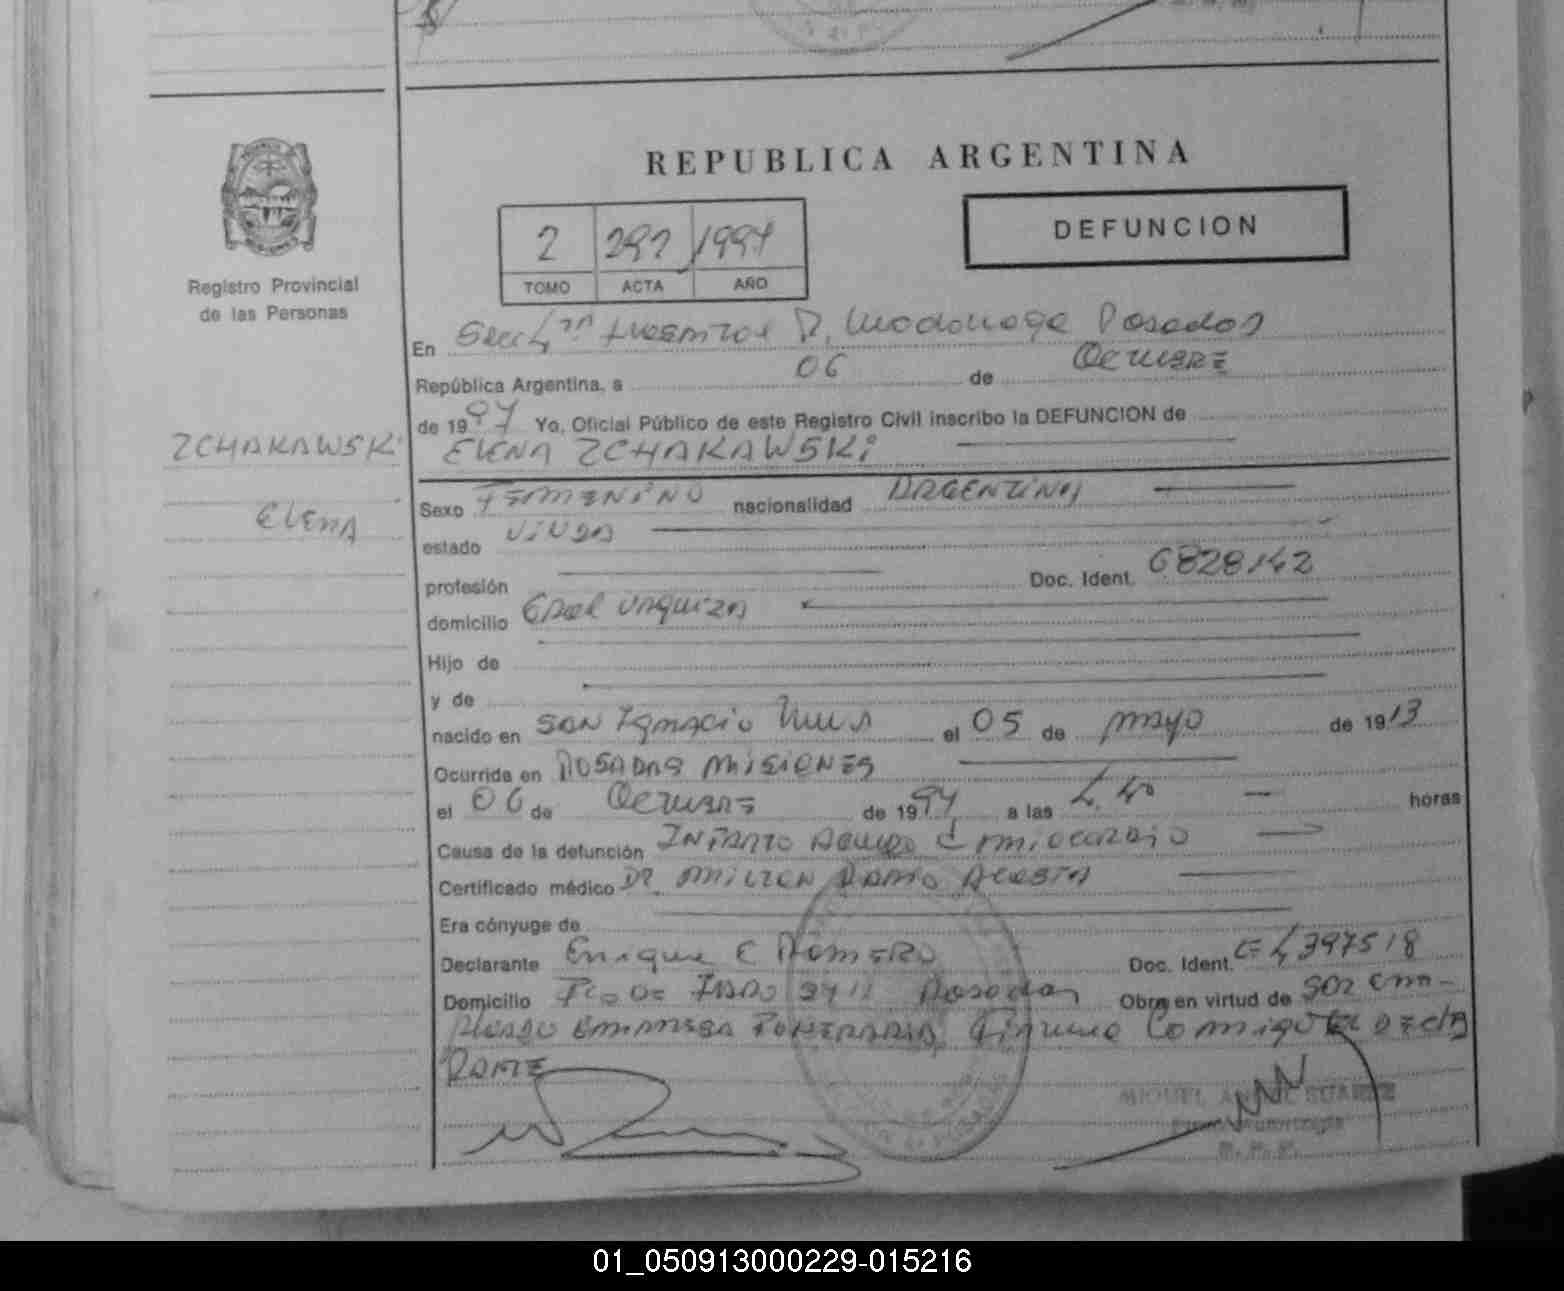 REPUBLICA ARGENTINA
DEFUNCION
2 292 1994
TOMO ACTA AÑO
Registro Provincial
de las Personas
En Secc 4 Posadas
República Argentina, a 06 de Octubre
de 1994 Yo, Oficial Público de este Registro Civil inscribo la DEFUNCION de
ZCHAKAWSKi
ELENA ZCHAKAWSKi
ELENA
Sexo FEMENINO nacionalidad ARGENTINA
estado ViUDA
profesión Doc. Ident. 6828142
domicilio Gral Urquiza
Hijo de
y de
nacido en San Ignacio Mnes el 05 de mayo de 1913
Ocurrida en POSADAS MISIONES
el 06 de Octubre de 1994 a las 4.40 horas
Causa de la defunción INFARTO Agudo d miocardio
Certificado médico Dr. Milton Acosta
Era cónyuge de
Declarante Enrique E ROMERO Doc. Ident. 4397518
Domicilio Posadas Obra en virtud de ser em-
pleado EMPRESA FUNERARIA Firma Comigo EL DECLA
RANTE
MIGUEL ANGEL SUAREZ
R. P. P.
01_050913000229-015216